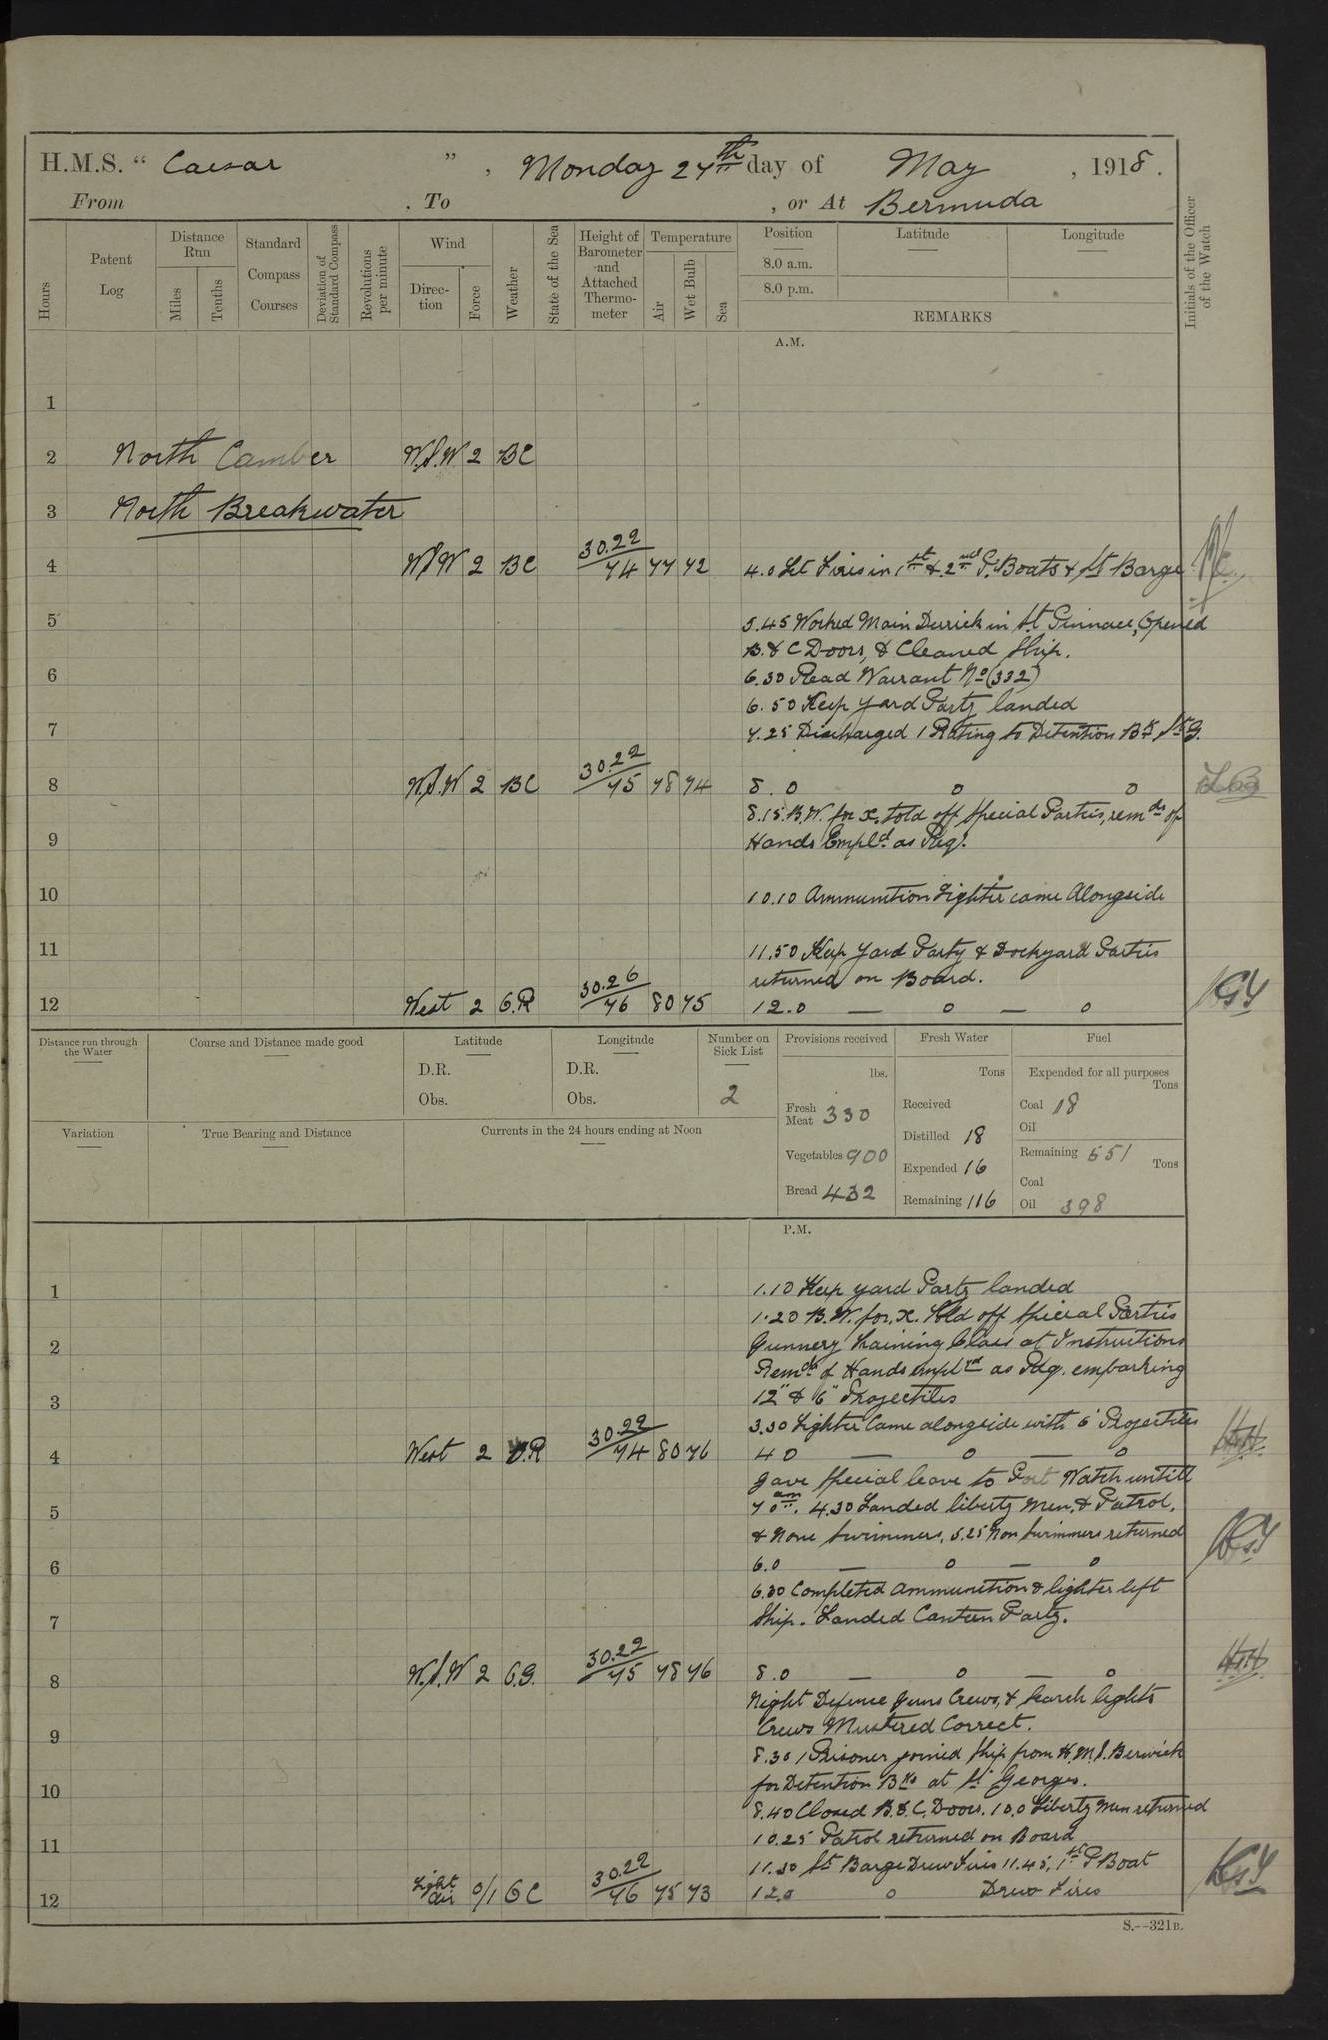 H.M.S. “ Caesar ” , Monday 27th day of May , 1918 .
From . To , or At Bermuda
Hours
Patent Log
Distance Run
Miles
Tenths
Standard Compass Courses
Deviation of Standard Compass
Revolutions per minute
Wind
Direction
Force
Weather
State of the Sea
Height of Barometer and Attached Thermometer
Temperature
Air
Wet Bulb
Sea
Position
8.0 a.m.
8.0 p.m.
Latitude
Longitude
REMARKS
Initials of the Officer of the Watch
A.M.
1
2 North Camber W.S.W 2 BC
3 North Breakwater
4 WSW 2 BC 30.22/74 77 72 4.0 Let Fires in 1st & 2nd P. Boats & St Barge
5 5.45 Worked Main Derrick in St Pinnace, Opened
B & C Doors, & Cleaned Ship.
6 6.30 Read Warrant No (332)
6.50 Keep Yard Party landed
7 7.25 Discharged 1 Rating to Detention Bks St G.
8 W.S.W 2 BC 30.22/75 78 74 8.0 0 0
8.15 B.W. for x. told off Special Parties, remdr of
9 Hands Empld as Req.
10 10.10 Ammunition Lighter came Alongside
11 11.50 Keep Yard Party & Dockyard Parties
returned on Board.
12 West 2 O.R 30.26/76 80 75 12.0 — 0 — 0
Distance run through the Water
Course and Distance made good
Latitude
D.R.
Obs.
Longitude
D.R.
Obs.
Number on Sick List
2
Provisions received
lbs.
Fresh Meat 330
Vegetables 900
Bread 432
Fresh Water
Tons
Received
Distilled 18
Expended 16
Remaining 116
Fuel
Expended for all purposes
Tons
Coal 18
Oil
Remaining 551
Tons
Coal
Oil 398
Variation
True Bearing and Distance
Currents in the 24 hours ending at Noon
P.M.
1 1.10 Keep yard Party landed
1.20 B.W. for x. Told off Special Parties
2 Gunnery Training Class at Instructions
Remdr of Hands empld as Req. embarking
3 12" & 6" Projectiles
3.30 Lighter Came alongside with 6" Projectiles
4 West 2 O.R 30.22/74 80 76 4 0 — 0 — 0
Gave Special leave to Port Watch untill
5 7 0 am. 4.30 Landed liberty men, & Patrol,
& None Swimmers, 5.25 Non Swimmers returned
6 6.0 — 0 — 0
6.30 Completed Ammunition & lighter left
7 Ship. Landed Canteen Party.
8 W.S.W 2 O.G. 30.22/75 78 76 8.0 — 0 — 0
Night Defence Guns Crews, & Search lights
9 Crews Mustered Correct.
8.30 1 Prisoner joined Ship from H.M.S. Berwick
10 for Detention Bks at St Georges.
8.40 Closed B. & C. Doors. 10.0 Liberty Men returned
11 10.25 Patrol returned on Board
11.30 St Barge Drew Fires 11.45, 1st P Boat
12 Light Air 0/1 O C 30.22/76 75 73 12.0 0 Drew Fires
S.—321B.